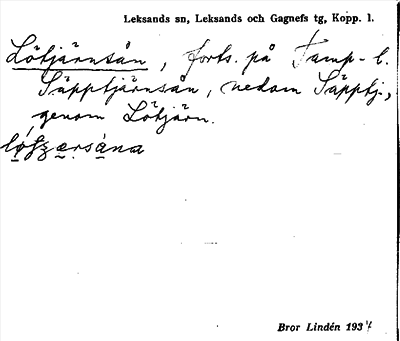 Leksands sn, Leksands och Gagnefs tg, Kopp. l.
Lötjärnsån, forts. på Tamp- l.
Säpptjärnsån, nedom Säpptj.,
genom Lötjärn.
Bror Lindén 1934